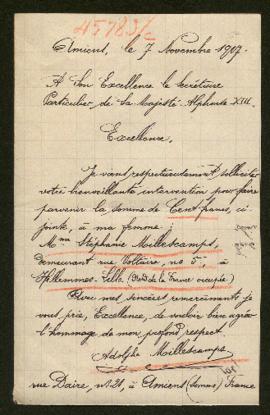 45783/c
Amiens, le 7 Novembre 1917.
A Son Excellence le Secrétaire
Particulier de Sa Majesté Alphonse XIII.
Excellence,
Je viens respectueusement solliciter
votre bienveillante intervention pour faire
parvenir la somme de Cent francs, ci-
jointe, à ma femme:
Mme Stéphanie Millescamps,
demeurant rue Voltaire, no 5, à
Hellemmes-Lille (Nord de la France occupée)
Avec mes sincères remerciements, je
vous prie, Excellence, de vouloir bien agréer
l'hommage de mon profond respect
Adolphe Millescamps
rue Daire, no 21, à Amiens (Somme) France